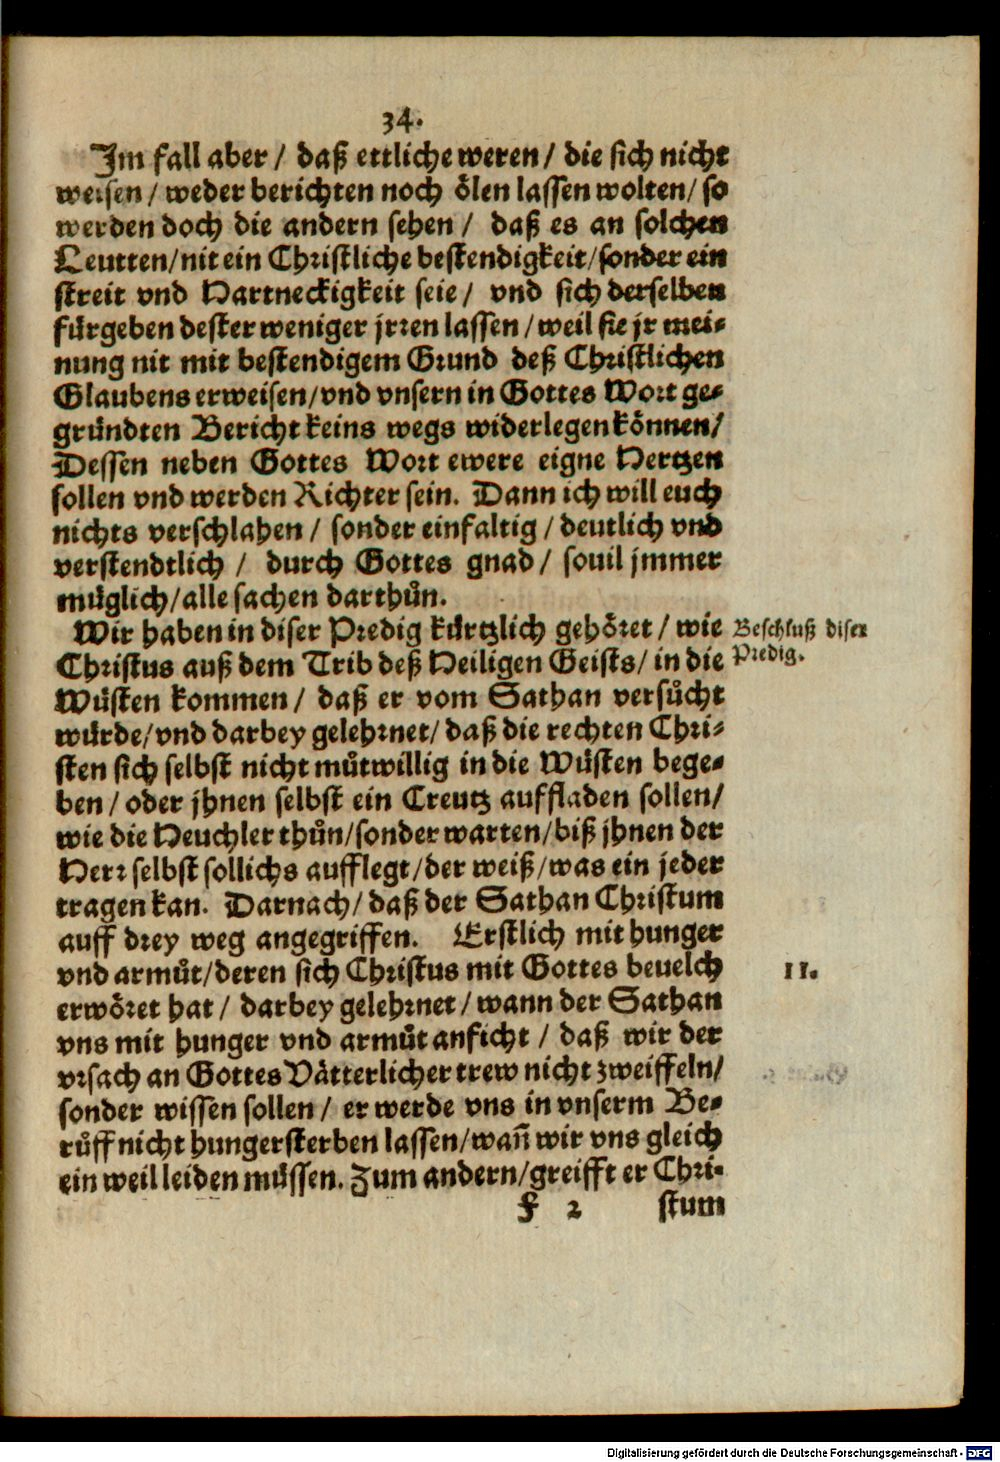 34.
Im fall aber / daß ettliche weren / die sich nicht
weisen / weder berichten noch ölen lassen wolten / so
werden doch die andern sehen / daß es an solchen
Leutten / nit ein Christliche bestendigkeit / sonder ein
streit vnd Hartneckigkeit seie / vnd sich derselben
fürgeben dester weniger jrren lassen / weil sie jr mei-
nung nit mit bestendigem Grund deß Christlichen
Glaubens erweisen / vnd vnsern in Gottes Wort ge-
gründten Bericht keins wegs widerlegen können /
Dessen neben Gottes Wort ewere eigne Hertzen
sollen vnd werden Richter sein. Dann ich will euch
nichts verschlahen / sonder einfaltig / deutlich vnd
verstendtlich / durch Gottes gnad / souil jmmer
müglich / alle sachen darthůn.
Wir haben in diser Predig kürtzlich gehöret / wie
Beschluß diser
Predig.
Christus auß dem Trib deß Heiligen Geists / in die
Wüsten kommen / daß er vom Sathan versůcht
würde / vnd darbey gelehrnet / daß die rechten Chri-
sten sich selbst nicht můtwillig in die Wüsten bege-
ben / oder jhnen selbst ein Creutz auffladen sollen /
wie die Heuchler thůn / sonder warten / biß jhnen der
Herr selbst sollichs aufflegt / der weiß / was ein jeder
tragen kan. Darnach / daß der Sathan Christum
auff drey weg angegriffen. Erstlich mit hunger
vnd armůt / deren sich Christus mit Gottes beuelch
11.
erwöret hat / darbey gelehrnet / wann der Sathan
vns mit hunger vnd armůt anficht / daß wir der
vrsach an Gottes Vätterlicher trew nicht zweiffeln /
sonder wissen sollen / er werde vns in vnserm Be-
růff nicht hungersterben lassen / wañ wir vns gleich
ein weil leiden müssen. Zum andern / greifft er Chri-
f 2 stum
Digitalisierung gefördert durch die Deutsche Forschungsgemeinschaft - DFG